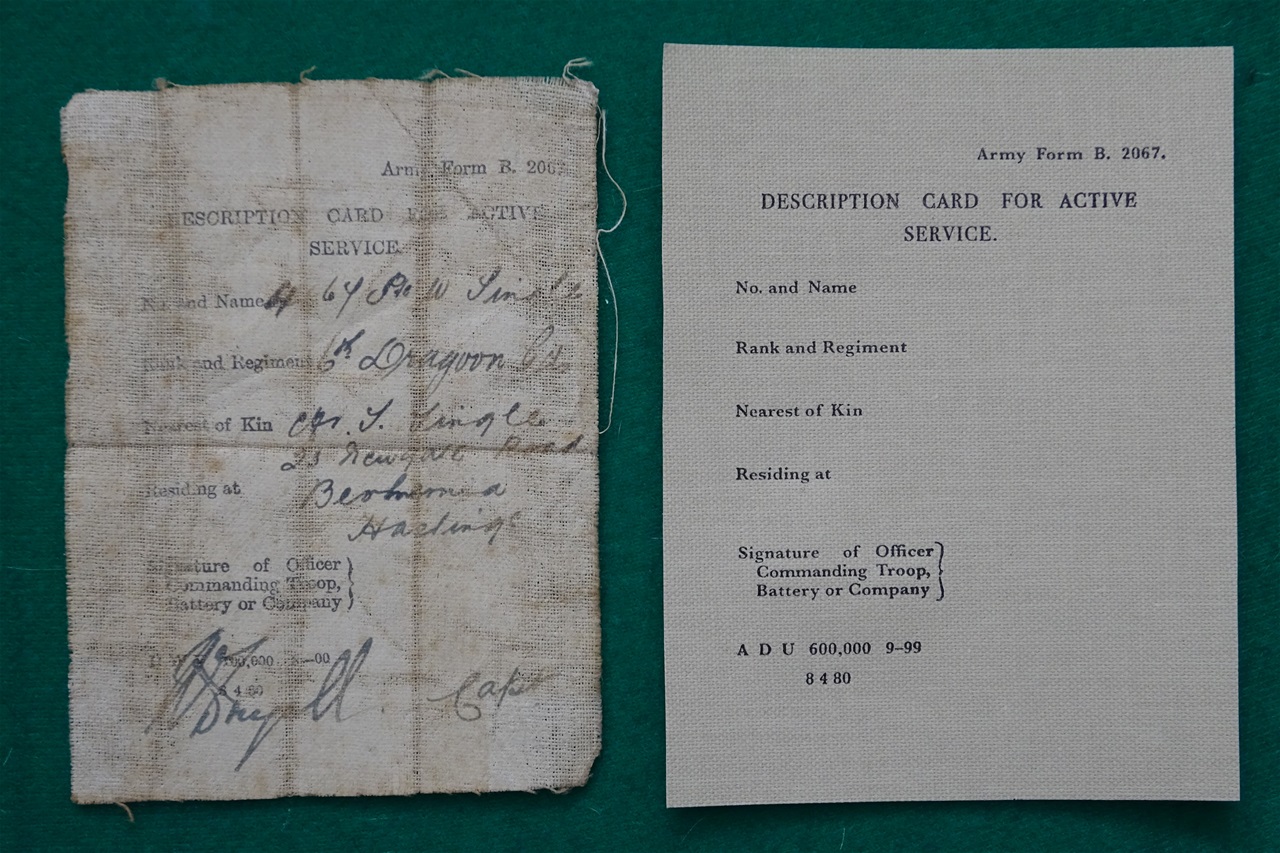 Army Form B. 2067
DESCRIPTION CARD FOR ACTIVE
SERVICE.
No. and Name 64 Pte W Single
Rank and Regiment 6th Dragoon Gds
Nearest of Kin Mr. J. Single
23 Newgate Road
Residing at Berhemia
Hastings
Signature of Officer
Commanding Troop,
Battery or Company
00,000 —00
8 4 80
Capt
Army Form B. 2067.
DESCRIPTION CARD FOR ACTIVE
SERVICE.
No. and Name
Rank and Regiment
Nearest of Kin
Residing at
Signature of Officer
Commanding Troop,
Battery or Company
A D U 600,000 9–99
8 4 80